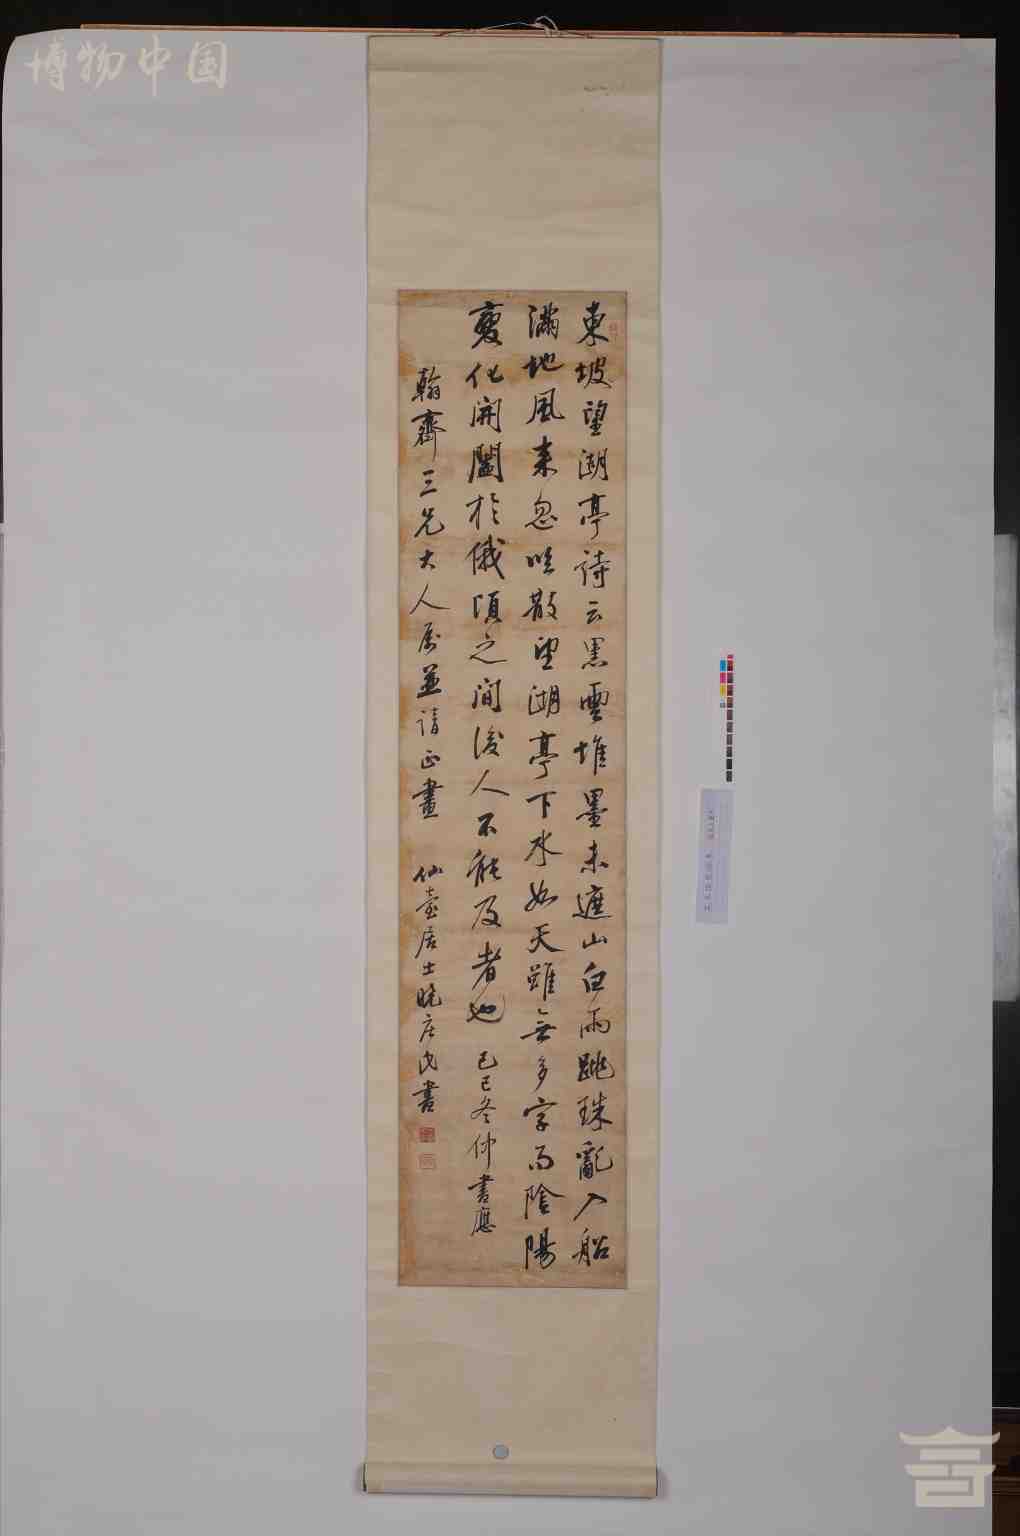 博物中国
東坡望湖亭詩云黑雲堆墨未遮山白雨跳珠亂入船
滿地風來忽吹散望湖亭下水如天雖無多字而陰陽
變化開闔於俄頃之間後人不能及者也 己巳冬仲書應
翰齋三兄大人属並請正畫 仙臺居士晓庄氏書